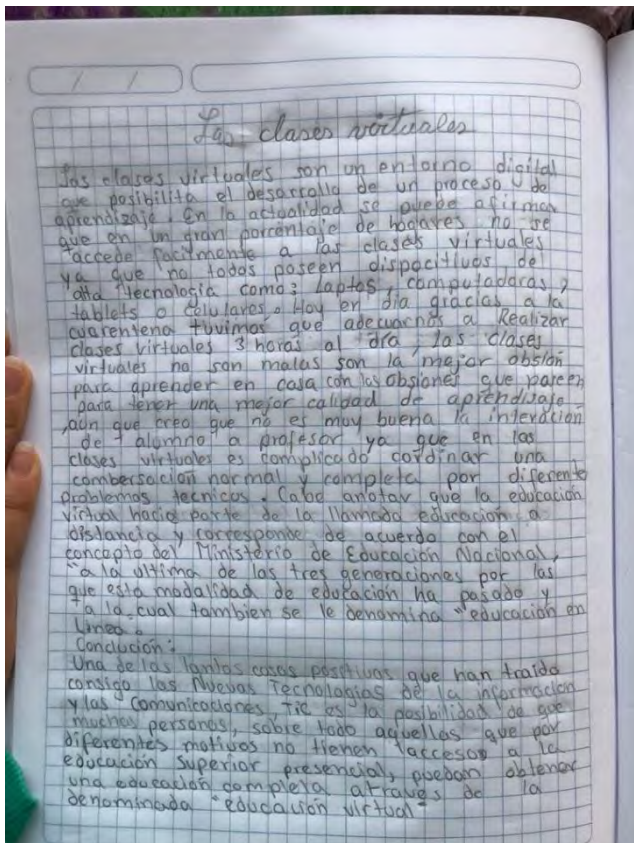 Las clases virtuales
Las clases virtuales son un entorno digital
que posibilita el desarrollo de un proceso de
aprendizaje. En la actualidad se puede afirmar
que en un gran porcentaje de hogares no se
accede facilmente a las clases virtuales
ya que no todos poseen dispocitivos de
alta tecnologia como: Laptos, computadoras,
tablets o celulares. Hoy en dia gracias a la
cuarentena tuvimos que adecuarnos a Realizar
clases virtuales 3 horas al dia, las clases
virtuales no son malas son la mejor obsión
para aprender en casa con las obsiones que parecen
para tener una mejor calidad de aprendizaje
,aún que creo que no es muy buena la interación
de alomno a profesor ya que en las
clases virtuales es complicado cordinar una
combersación normal y completa por diferente
problemas tecnicos. Cabe anotar que la educación
virtual hacia parte de la llamada educación a
distancia y corresponde de acuerdo con el
concepto del Ministerio de Educación Nacional,
"a la ultima de las tres generaciones por las
que esta modalidad de educación ha pasado y
a la cual tambien se le denomina "educación en
Linea".
Conclución:
Una de las tantas cosas positivas que han traido
consigo las Nuevas Tecnologias de la información
y las Comunicaciones, TIC es la posibilidad de que
muchas personas, sobre todo aquellas que por
diferentes motivos no tienen acceso a la
educación superior presencial, puedan obtener
una educación completa atraves de la
denominada "educación virtual"